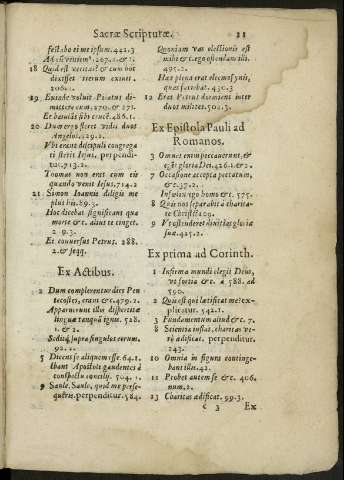 Sacræ Scripturæ. 21
festabo ei me ipsum. 421.3
Ad eū venimus. 207.1. & 2.
18 Quid est veritas? & cum hoc
dixisset iterum exiuit.
206.1.
19 Exinde voluit Pilatus di-
mittere eum. 270. & 271.
Et baiulās sibi crucē. 486.1.
20 Dum ergo fleret vidit duos
Angelos. 129.2.
Vbi erant discipuli congrega
ti stetit Iesus, perpendi-
tur. 713.2.
Thomas non erat cum eis
quando venit Iesus. 714.2
21 Simon Ioannis diligis me
plus his. 89.3.
Hoc dicebat significans qua
morte &c. alius te cinget.
2 9.3.
Et conuersus Petrus. 288.
2. & seqq.
Ex Actibus.
2 Dum complerentur dies Pen
tecostes, erant &c. 479.2.
Apparuerunt illis dispertitæ
linguæ tanquā ignis. 528.
1. & 2.
Seditq́; supra singulos eorum.
92.2.
5 Dicens se aliquem esse. 64.1.
Ibant Apostoli gaudentes à
conspectu concilij. 504.1.
9 Saule, Saule, quid me perse-
queris. perpenditur. 584.
Quoniam vas electionis est
mihi &c. ego ostendam illi.
495.2.
Hæc plena erat eleemosynis,
quas faciebat. 430.3
12 Erat Petrus dormiens inter
duos milites. 501.3.
Ex Epistola Pauli ad
Romanos.
3 Omnes enim peccauerunt, &
egēt gloria Dei. 426.1. & 2.
7 Occasione accepta peccatum,
&c. 37.2.
Infœlix ego homo &c. 575.
8 Quis nos separabit à charita-
te Christi?
9 Vt ostenderet diuitias gloriæ
suæ. 425.2.
Ex prima ad Corinth.
1 Infirma mundi elegit Deus,
vt fortia &c. à 588. ad
590.
2 Quis est qui lætificat me? ex-
plicatur. 542.1.
3 Fundamentum aliud &c. 7.
8 Scientia inflat, charitas ve-
rò ædificat. perpenditur.
243.
10 Omnia in figura continge-
bant illis. 42.
11 Probet autem se &c. 406.
num. 2.
13 Charitas ædificat. 99.3.
c 3 Ex